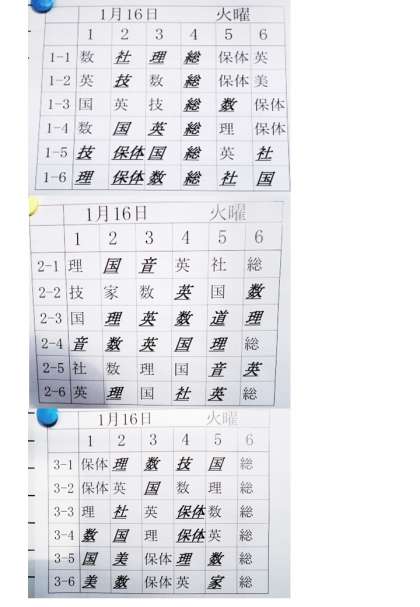 1月16日 火曜
1 2 3 4 5 6
1-1 数 社 理 総 保体 英
1-2 英 技 数 総 保体 美
1-3 国 英 技 総 数 保体
1-4 数 国 英 総 理 保体
1-5 技 保体 国 総 英 社
1-6 理 保体 数 総 社 国
1月16日 火曜
1 2 3 4 5 6
2-1 理 国 音 英 社 総
2-2 技 家 数 英 国 数
2-3 国 理 英 数 道 理
2-4 音 数 英 国 理 総
2-5 社 数 理 国 音 英
2-6 英 理 国 社 英 総
1月16日 火曜
1 2 3 4 5 6
3-1 保体 理 数 技 国 総
3-2 保体 英 国 数 理 総
3-3 理 社 英 保体 数 総
3-4 数 国 理 保体 英 総
3-5 国 美 保体 理 数 総
3-6 美 数 保体 英 家 総